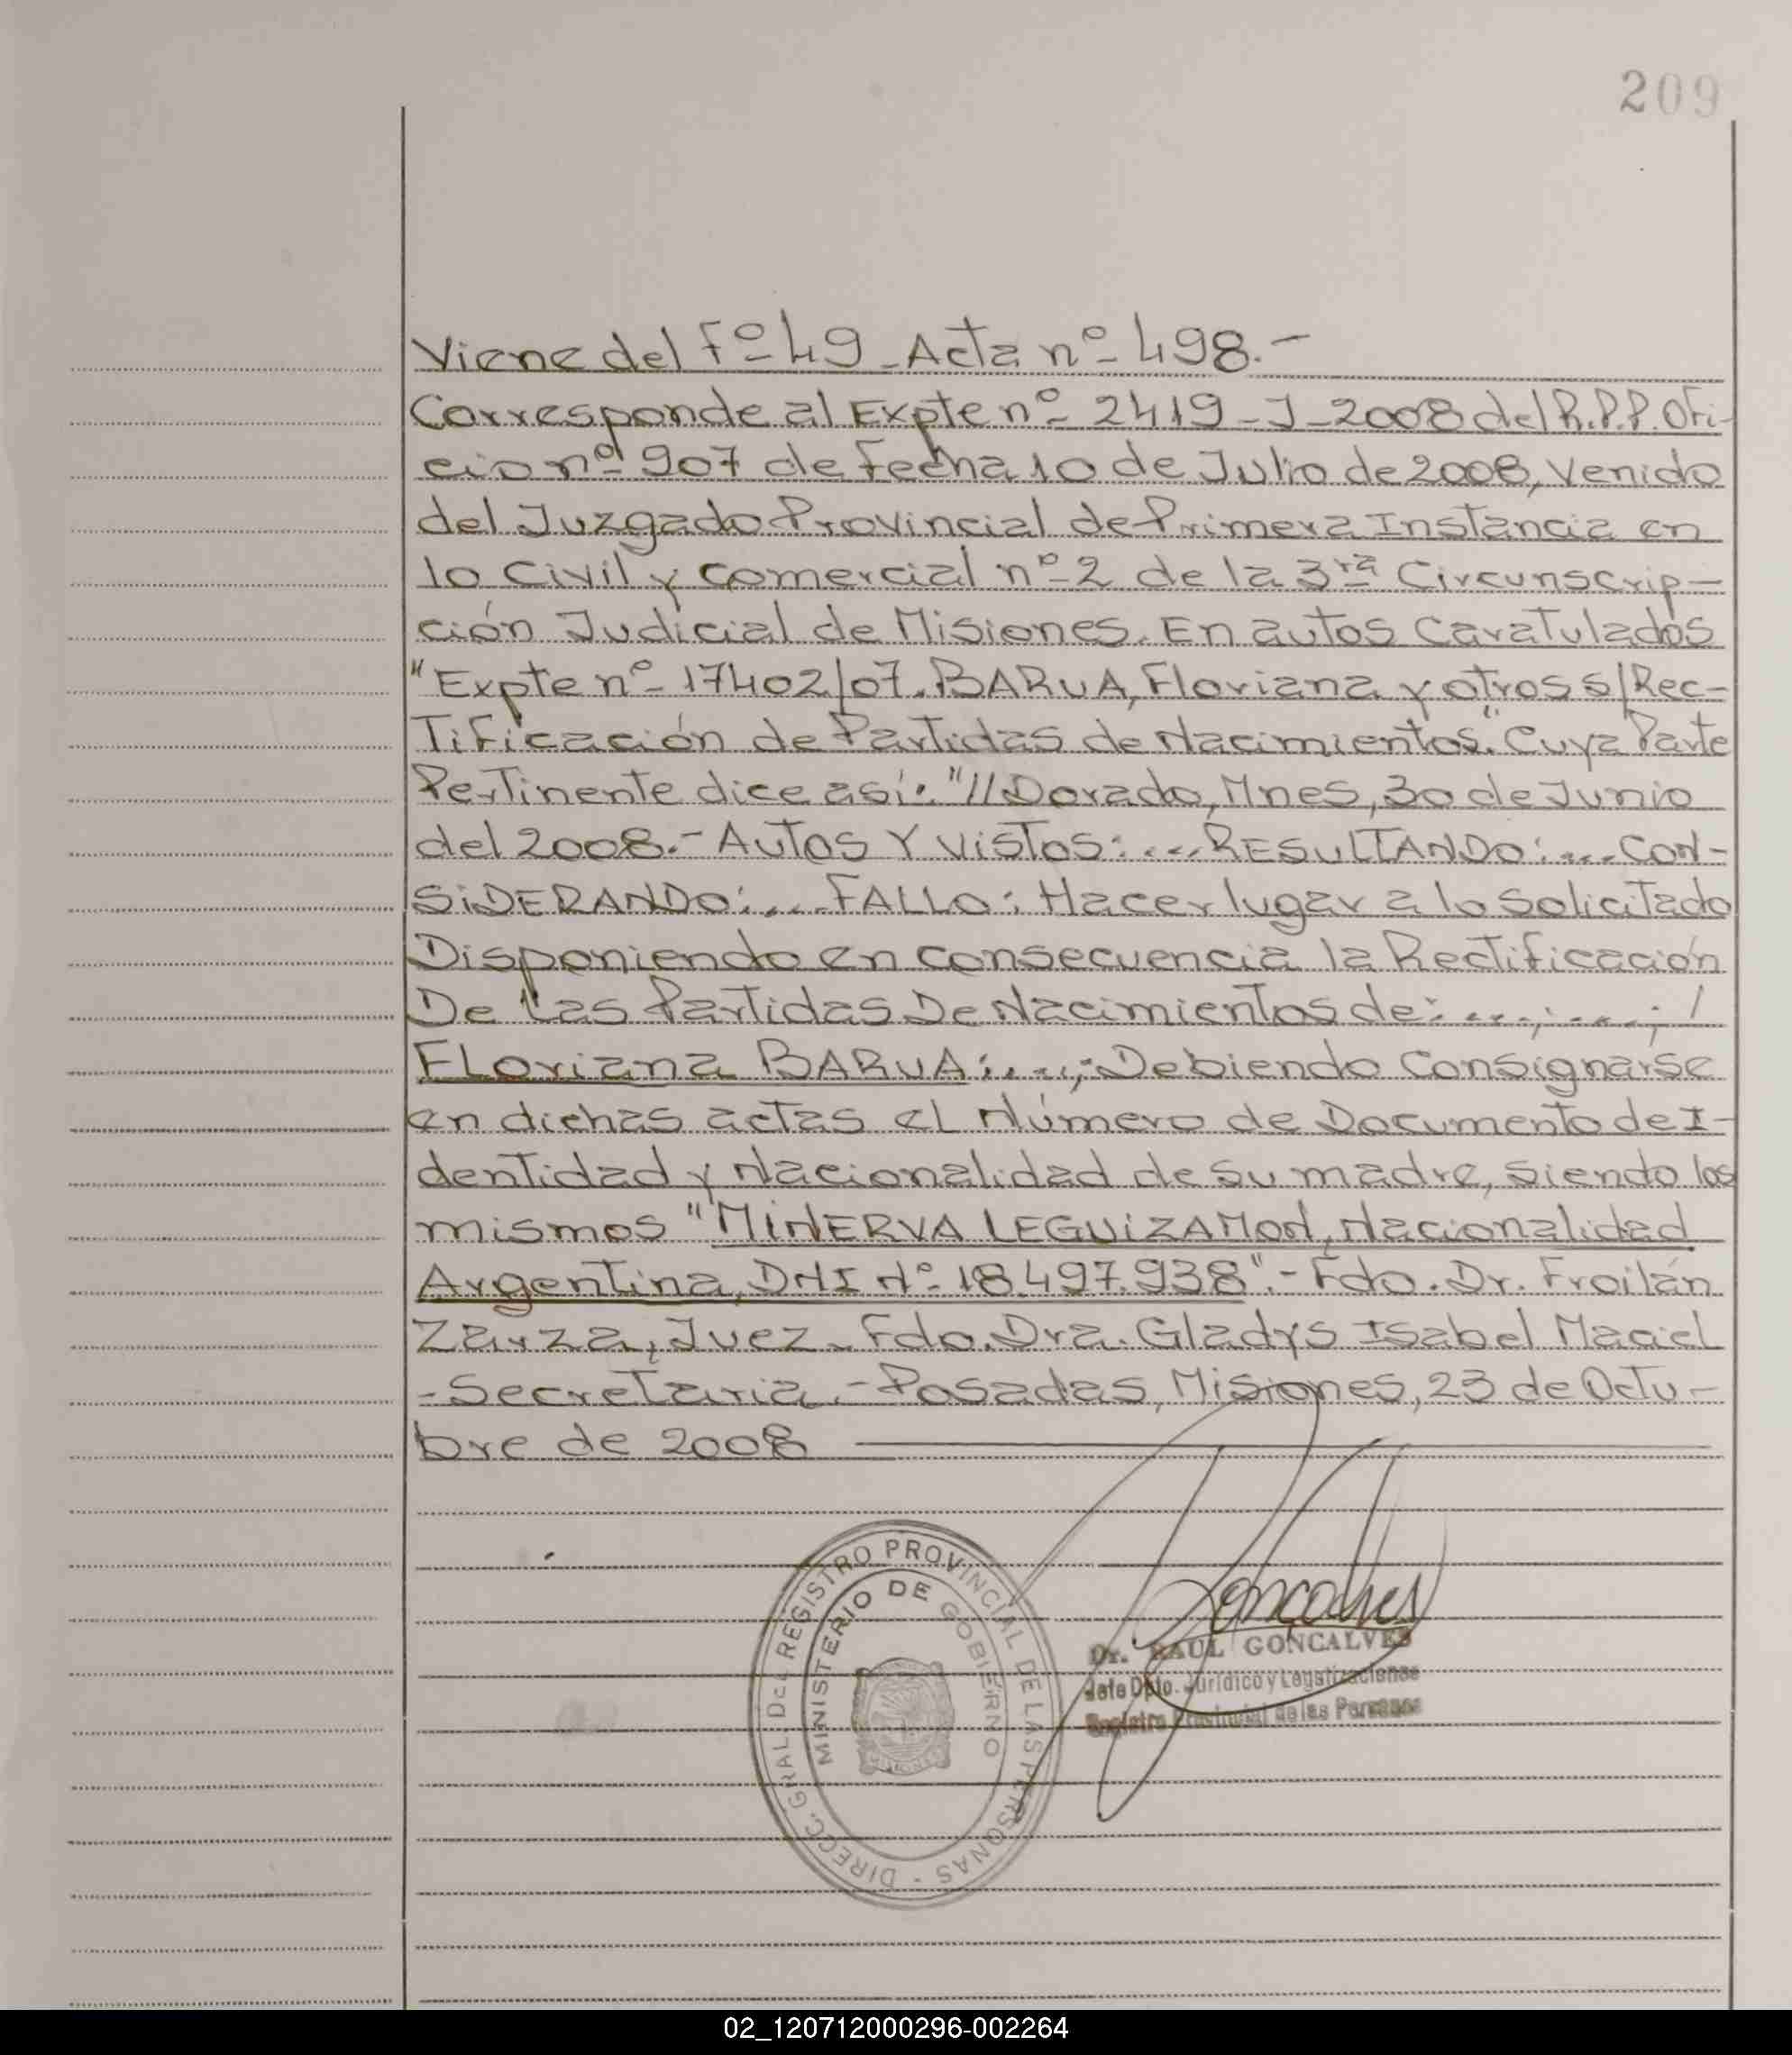 209
Viene del Fº 49 - Acta nº 498.-
Corresponde al Expte nº 2419-J-2008 del R.P.P. Ofi-
cio nº 907 de Fecha 10 de Julio de 2008, Venido
del Juzgado Provincial de Primera Instancia en
lo Civil y Comercial nº 2 de la 3ra Circunscrip-
ción Judicial de Misiones. En autos Caratulados
"Expte nº 17402/07. BARUA, Floriana y otros s/Rec-
Tificación de Partidas de Nacimientos". Cuya Parte
Pertinente dice así: "//Dorado, Mnes, 30 de Junio
del 2008.- Autos Y Vistos:....RESULTANDO:....CON-
SiDERANDO:....FALLO: Hacer lugar a lo Solicitado
Disponiendo en consecuencia la Rectificación
De Las Partidas De Nacimientos de: ....;....; /
FLoriana BARUA:....;-Debiendo Consignarse
en dichas actas el Número de Documento de I-
dentidad y Nacionalidad de su madre, siendo los
mismos "MiNERVA LEGUiZAMoN, Nacionalidad
Argentina, DNI Nº 18.497.938".- Fdo. Dr. Froilán
Zarza, Juez - Fdo. Dra. Gladys Isabel Maciel
-Secretaria.- Posadas, Misiones, 23 de Octu-
bre de 2008
DIRECC. GRAL. DEL REGISTRO PROVINCIAL DE LAS PERSONAS -
MINISTERIO DE GOBIERNO
MISIONES
Goncalves
Dr. RAUL GONCALVES
Jefe Dpto. Jurídico y Legalizaciones
Registro Provincial de las Personas
02_120712000296-002264